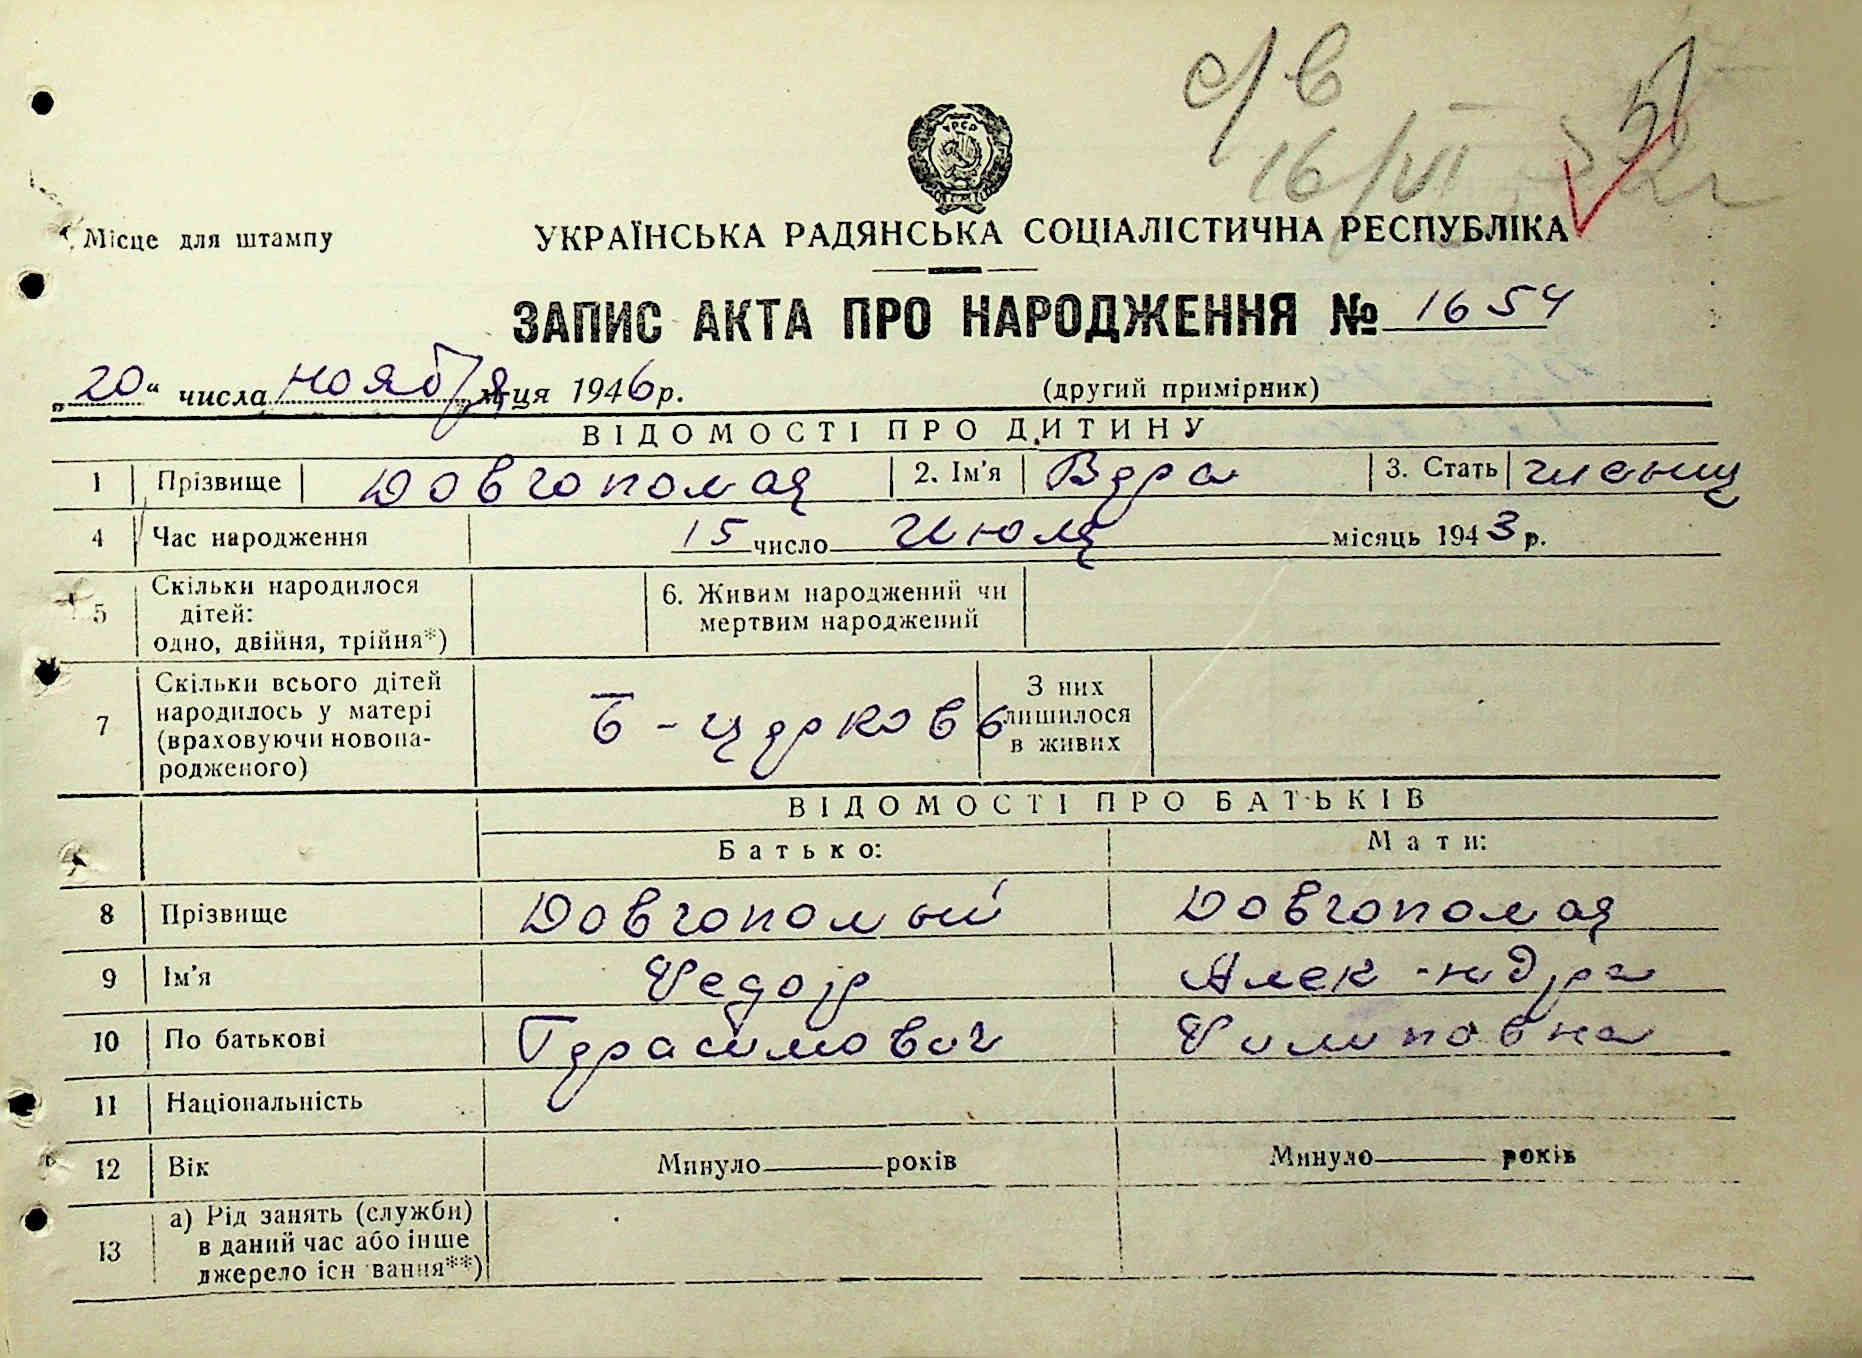 с/в
16/VI 52г
УРСР
Місце для штампу
УКРАЇНСЬКА РАДЯНСЬКА СОЦІАЛІСТИЧНА РЕСПУБЛІКА
ЗАПИС АКТА ПРО НАРОДЖЕННЯ № 1654
„20“ числа ноября м-ця 1946 р. (другий примірник)
ВІДОМОСТІ ПРО ДИТИНУ
1 Прізвище Довгополая 2. Ім'я Вера 3. Стать женщ
4 Час народження 15 число Июля місяць 1943 р.
5 Скільки народилося дітей: одно, двійня, трійня*) 6. Живим народжений чи мертвим народжений
7 Скільки всього дітей народилось у матері (враховуючи новона-родженого) Б-церковь З них лишилося в живих
ВІДОМОСТІ ПРО БАТЬКІВ
Батько: Мати:
8 Прізвище Довгополый Довгополая
9 Ім'я Федор Алек-ндра
10 По батькові Герасимович Филиповна
11 Національність
12 Вік Минуло років Минуло років
13 а) Рід занять (служби) в даний час або інше джерело існ вання**)